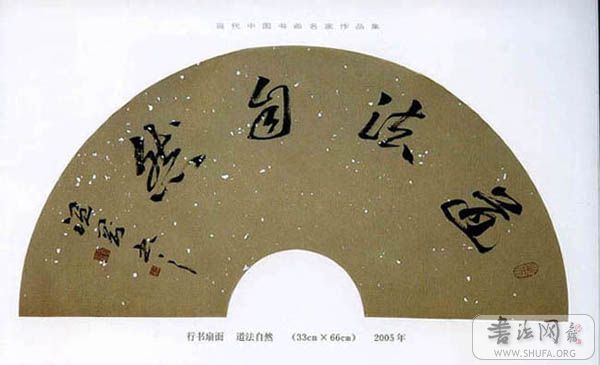 当代中国书画名家作品集
道法自然
行书扇面 道法自然 （33cm×66cm） 2005年
书法网
WWW.SHUFA.ORG